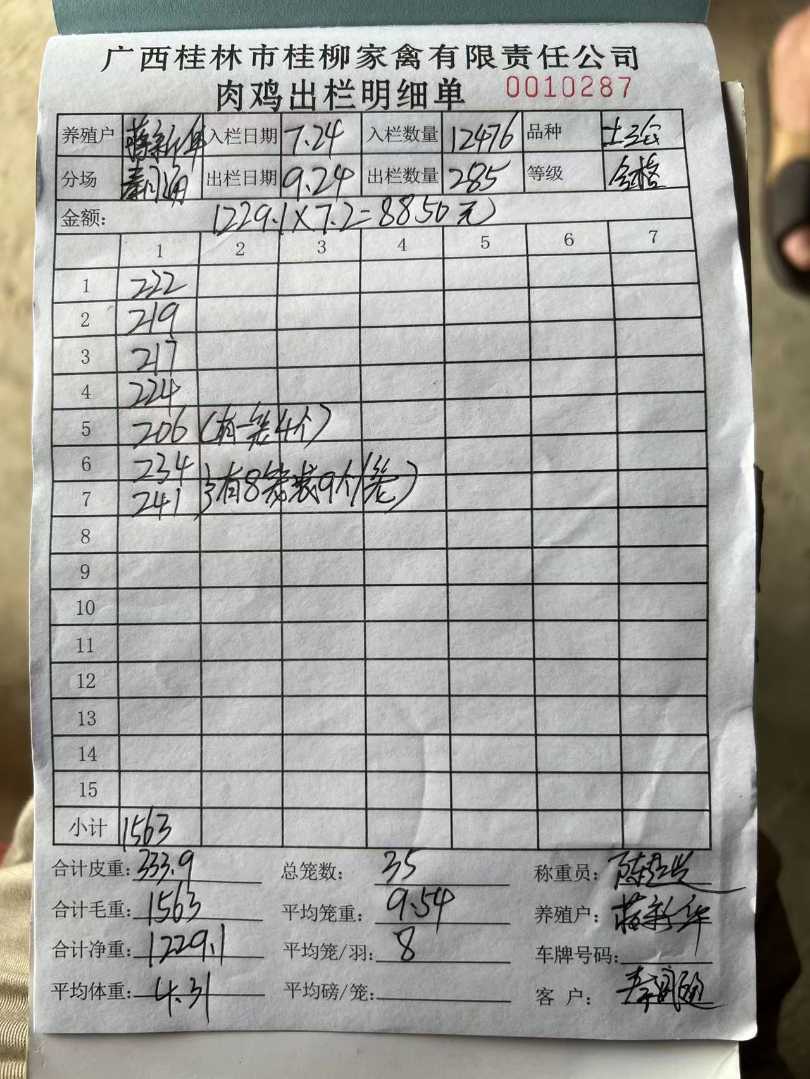 广西桂林市桂柳家禽有限责任公司
肉鸡出栏明细单 0010287
养殖户 蒋新华 入栏日期 7.24 入栏数量 12476 品种 土
分场 秦 出栏日期 9.24 出栏数量 285 等级 合格
金额: 1229.1×7.2=8850元
1 2 3 4 5 6 7
1 222
2 219
3 217
4 224
5 206 (有一笼4个)
6 234
7 241 }有8笼装9个/笼)
8
9
10
11
12
13
14
15
小计 1563
合计皮重: 333.9 总笼数: 35 称重员: 陈
合计毛重: 1563 平均笼重: 9.54 养殖户: 蒋新华
合计净重: 1229.1 平均笼/羽: 8 车牌号码:
平均体重: 4.31 平均磅/笼: 客 户: 秦